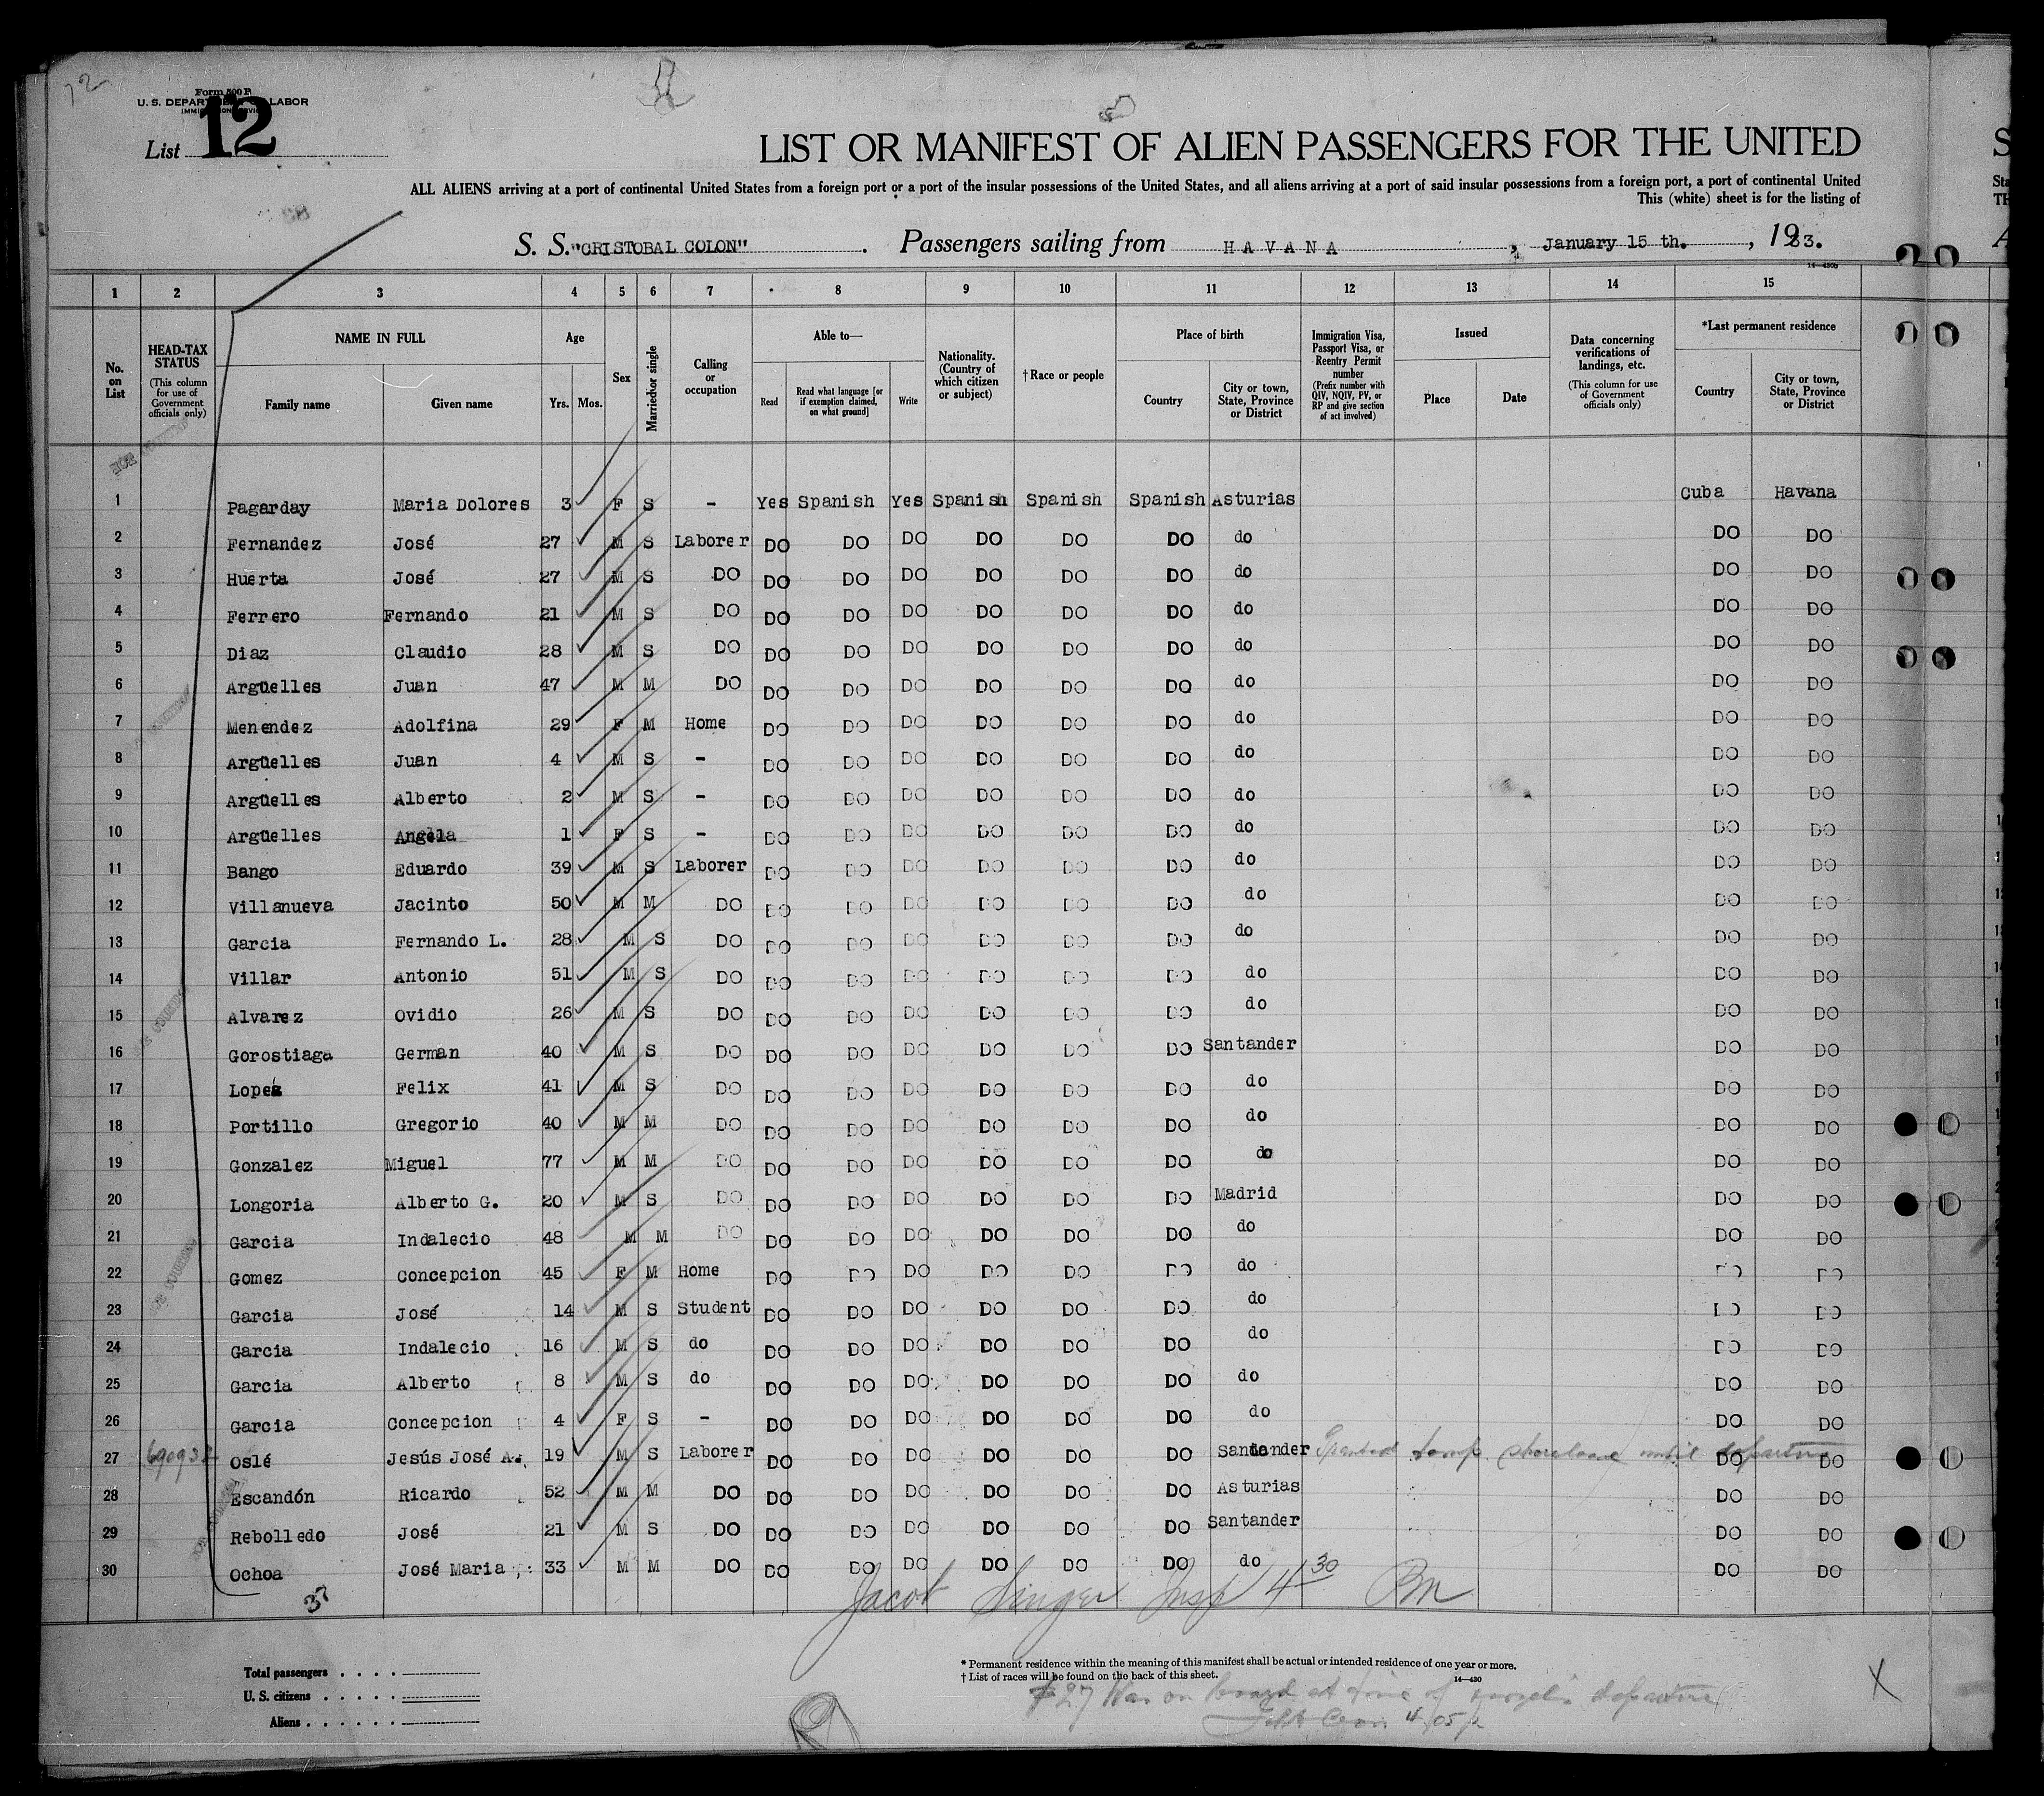 12
Form 500 B
U. S. DEPARTMENT OF LABOR
IMMIGRATION SERVICE
List 12
LIST OR MANIFEST OF ALIEN PASSENGERS FOR THE UNITED
ALL ALIENS arriving at a port of continental United States from a foreign port or a port of the insular possessions of the United States, and all aliens arriving at a port of said insular possessions from a foreign port, a port of continental United
This (white) sheet is for the listing of
S. S. "CRISTOBAL COLON" . Passengers sailing from HAVANA , January 15 th. , 1933.
14—430b
1 2 3 4 5 6 7 8 9 10 11 12 13 14 15
No. on List
HEAD-TAX STATUS (This column for use of Government officials only)
NAME IN FULL Family name Given name
Age Yrs. Mos.
Sex
Married or single
Calling or occupation
Able to— Read Read what language [or if exemption claimed, on what ground] Write
Nationality. (Country of which citizen or subject)
†Race or people
Place of birth Country City or town, State, Province or District
Immigration Visa, Passport Visa, or Reentry Permit number (Prefix number with QIV, NQIV, PV, or RP and give section of act involved)
Issued Place Date
Data concerning verifications of landings, etc. (This column for use of Government officials only)
*Last permanent residence Country City or town, State, Province or District
1 Pagarday Maria Dolores 3 F S - Yes Spanish Yes Spanish Spanish Spanish Asturias Cuba Havana
2 Fernandez José 27 M S Laborer DO DO DO DO DO DO do DO DO
3 Huerta José 27 M S DO DO DO DO DO DO DO do DO DO
4 Ferrero Fernando 21 M S DO DO DO DO DO DO DO do DO DO
5 Diaz Claudio 28 M S DO DO DO DO DO DO DO do DO DO
6 Argüelles Juan 47 M M DO DO DO DO DO DO DO do DO DO
7 Menendez Adolfina 29 F M Home DO DO DO DO DO DO do DO DO
8 Argüelles Juan 4 M S - DO DO DO DO DO DO do DO DO
9 Argüelles Alberto 2 M S - DO DO DO DO DO DO do DO DO
10 Argüelles Angela 1 F S - DO DO DO DO DO DO do DO DO
11 Bango Eduardo 39 M S Laborer DO DO DO DO DO DO do DO DO
12 Villanueva Jacinto 50 M M DO DO DO DO DO DO DO do DO DO
13 Garcia Fernando L. 28 M S DO DO DO DO DO DO DO do DO DO
14 Villar Antonio 51 M S DO DO DO DO DO DO DO do DO DO
15 Alvarez Ovidio 26 M S DO DO DO DO DO DO DO do DO DO
16 Gorostiaga German 40 M S DO DO DO DO DO DO DO Santander DO DO
17 Lopez Felix 41 M S DO DO DO DO DO DO DO do DO DO
18 Portillo Gregorio 40 M M DO DO DO DO DO DO DO do DO DO
19 Gonzalez Miguel 77 M M DO DO DO DO DO DO DO do DO DO
20 Longoria Alberto G. 20 M S DO DO DO DO DO DO DO Madrid DO DO
21 Garcia Indalecio 48 M M DO DO DO DO DO DO DO do DO DO
22 Gomez Concepcion 45 F M Home DO DO DO DO DO DO do DO DO
23 Garcia José 14 M S Student DO DO DO DO DO DO do DO DO
24 Garcia Indalecio 16 M S do DO DO DO DO DO DO do DO DO
25 Garcia Alberto 8 M S do DO DO DO DO DO DO do DO DO
26 Garcia Concepcion 4 F S - DO DO DO DO DO DO do DO DO
27 Oslé Jesús José A. 19 M S Laborer DO DO DO DO DO DO Santander Granted temp. shoreleave until departure DO DO
28 Escandón Ricardo 52 M M DO DO DO DO DO DO DO Asturias DO DO
29 Rebolledo José 21 M S DO DO DO DO DO DO DO Santander DO DO
30 Ochoa José Maria 33 M M DO DO DO DO DO DO DO do DO DO
37
Jacob Singer Insp 4 30 PM
Total passengers
U. S. citizens
Aliens
* Permanent residence within the meaning of this manifest shall be actual or intended residence of one year or more.
† List of races will be found on the back of this sheet.
14—430
#27 Was on board at time of vessel's departure
4/05 p
X